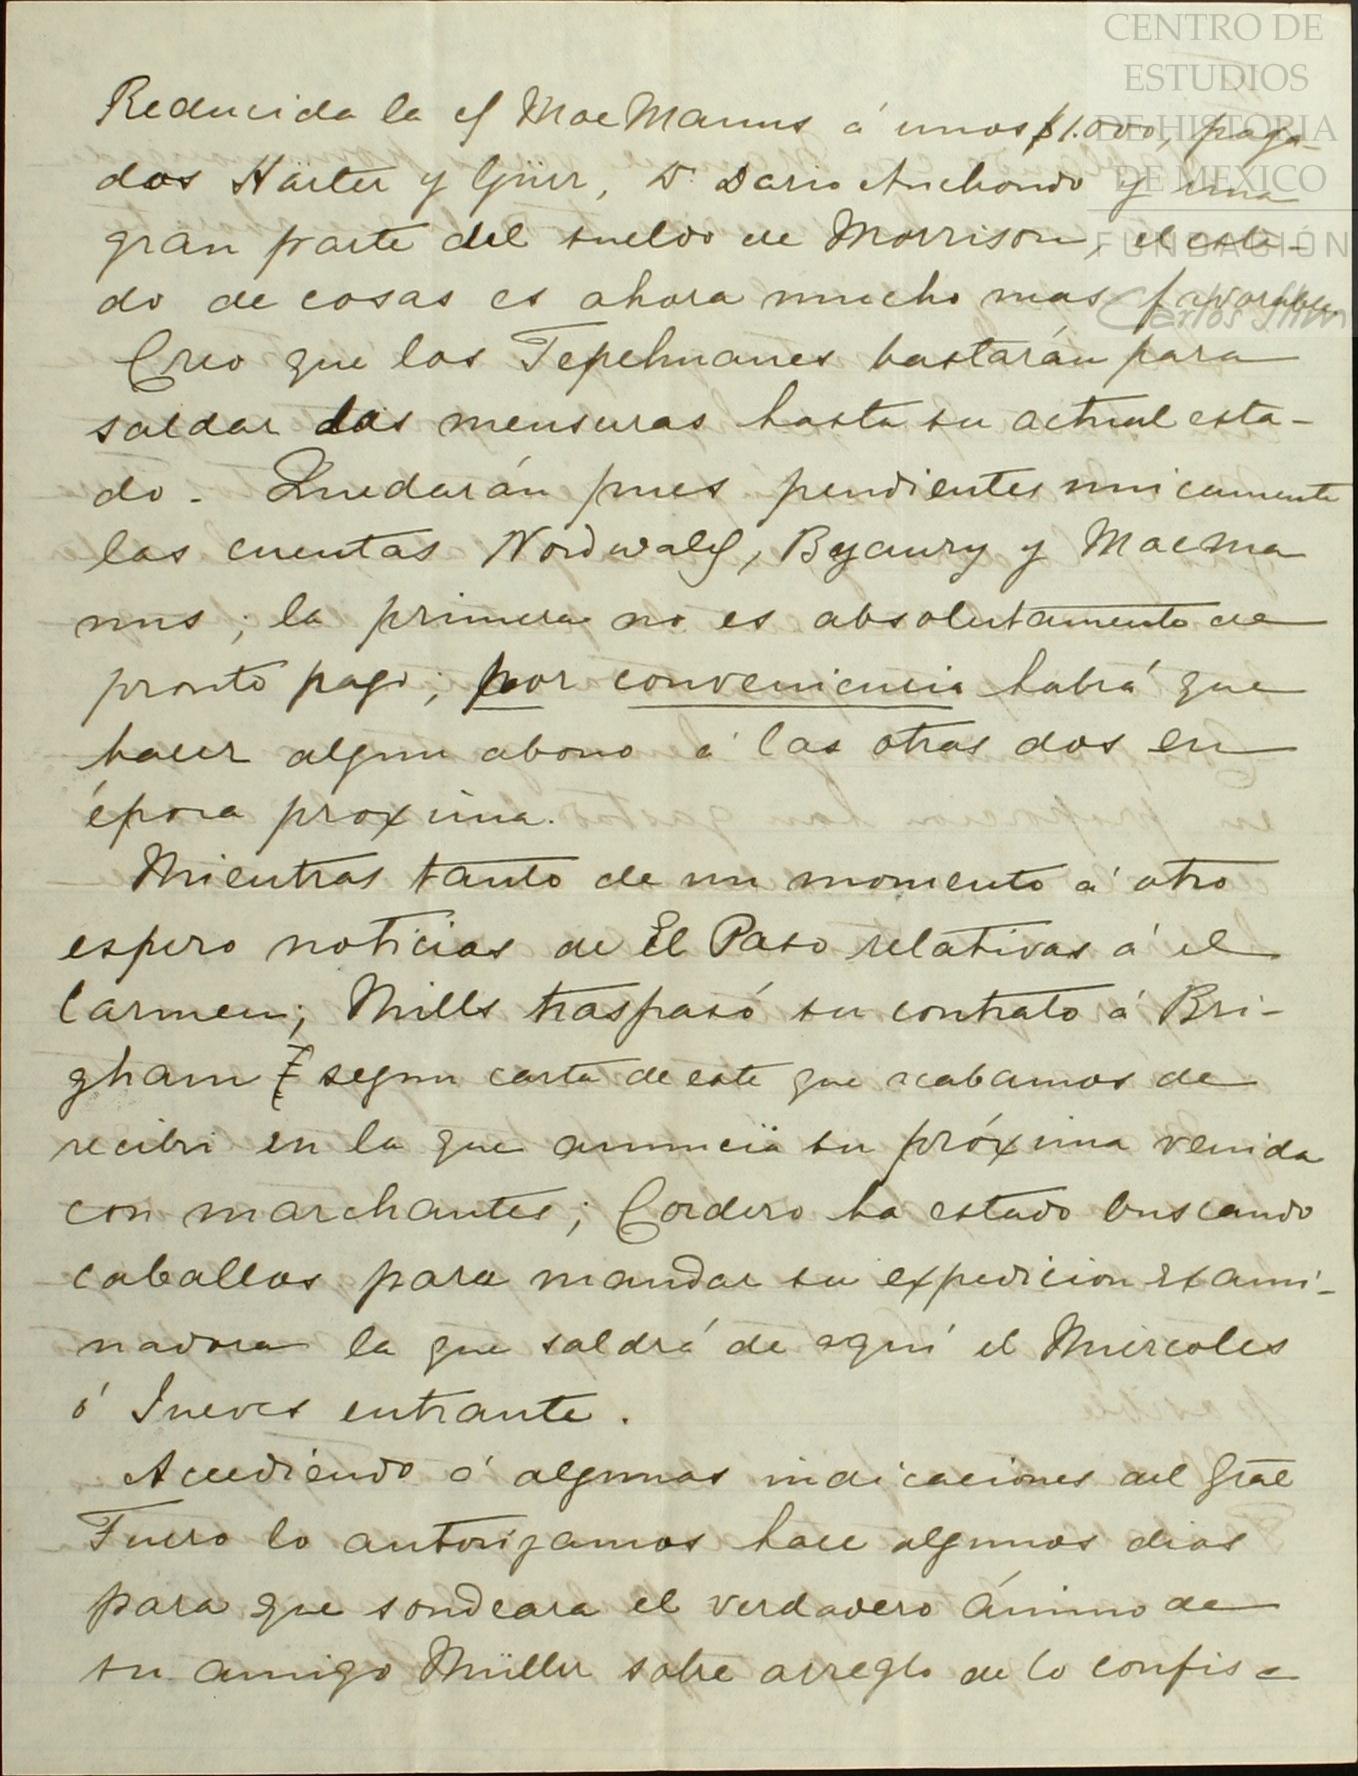 CENTRO DE
ESTUDIOS
DE HISTORIA
DE MEXICO
FUNDACIÓN
Carlos Slim
Reducida la cf MacManus á unos $1.000, paga-
dos Härter y Gürr, D. Dario Anchondo y una
gran parte del sueldo de Morrison, el esta-
do de cosas es ahora mucho mas favorable.
Creo que los Tepehuanes bastarán para
saldar las mensuras hasta su actual esta-
do. Quedarán pues pendientes unicamente
las cuentas Nordwald, y Macma
nus; la primera no es absolutamente de
pronto pago; por conveniencia habrá que
hacer algun abono á las otras dos en
época proxima.
Mientras tanto de un momento á otro
espero noticias de El Paso relativas á el
Carmen; Mills traspasó su contrato á Bri-
gham segun carta de este que acabamos de
recibir en la que anuncia su próxima venida
con marchantes; Cordero ha estado buscando
caballos para mandar su expedicion exami-
nadora la que saldrá de aquí el Miercoles
ó Jueves entrante.
Accediendo á algunas indicaciones del Gral
Fuero lo autorizamos hace algunos dias
para que sondeara el verdadero ánimo de
su amigo Müller sobre arreglo de lo confis-